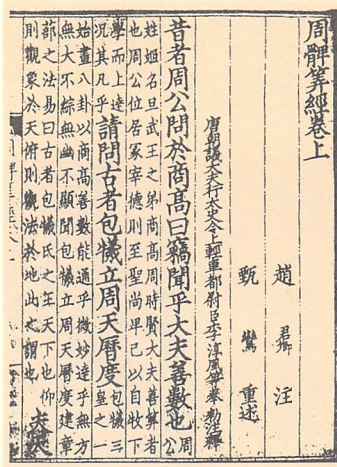 周髀算經卷上
趙君卿注
甄鸞重述
唐朝議大夫行太史令上輕車都尉臣李淳風等奉勅注釋
昔者周公問於商高曰竊聞乎大夫善數也周公
姓姬名旦武王之弟商高周時賢大夫善筭者
也周公位居冢宰德則至聖尚卑己以自牧下
學而上達
況其凡乎
請問古者包犧立周天曆度
包犧三
皇之一
始畫八卦以商高善數能通乎微妙達乎無方
無大不綜無幽不顯聞包犧立周天曆度建章
蔀之法易曰古者包犧氏之王天下也仰
則觀象於天俯則觀法於地此之謂也
夫天